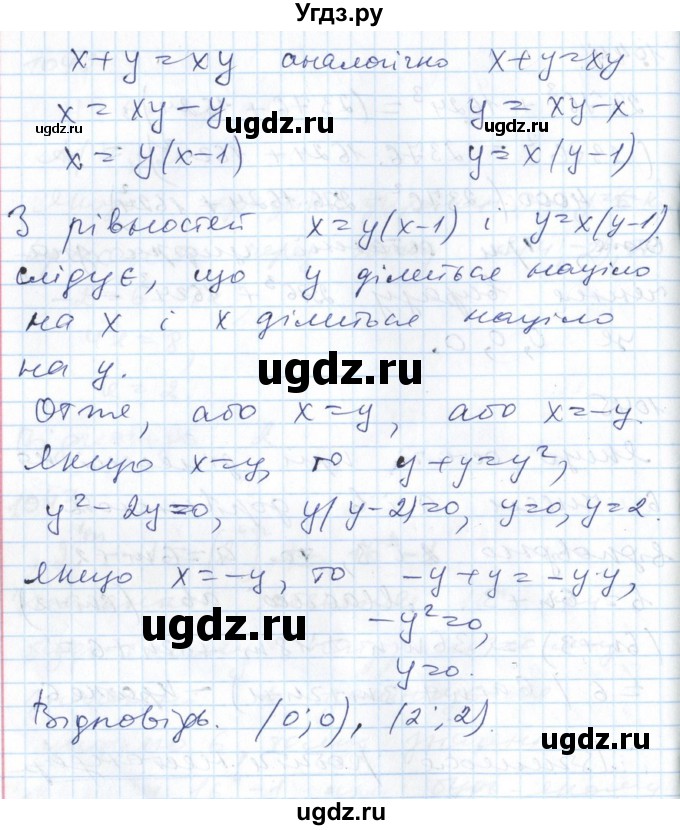 Угдз.ру
x+y=xy аналогічно x+y=xy
x = xy-y y = xy-x
gdz.ru ugdz.ru gdz.ru
x = y(x-1) y = x(y-1)
З рівностей x=y(x-1) і y=x(y-1)
слідує, що y ділиться націло
на x і x ділиться націло
на y.
ugdz.ru
Отже, або x=y, або x=-y.
Якщо x=y, то y+y=y²,
y²-2y=0, y(y-2)=0, y=0, y=2.
Якщо x=-y, то -y+y=-y·y,
ugdz.ru
-y²=0,
gdz.ru gdz.ru
y=0.
Відповідь. (0;0), (2;2).
ugdz.ru
ugdz.ru